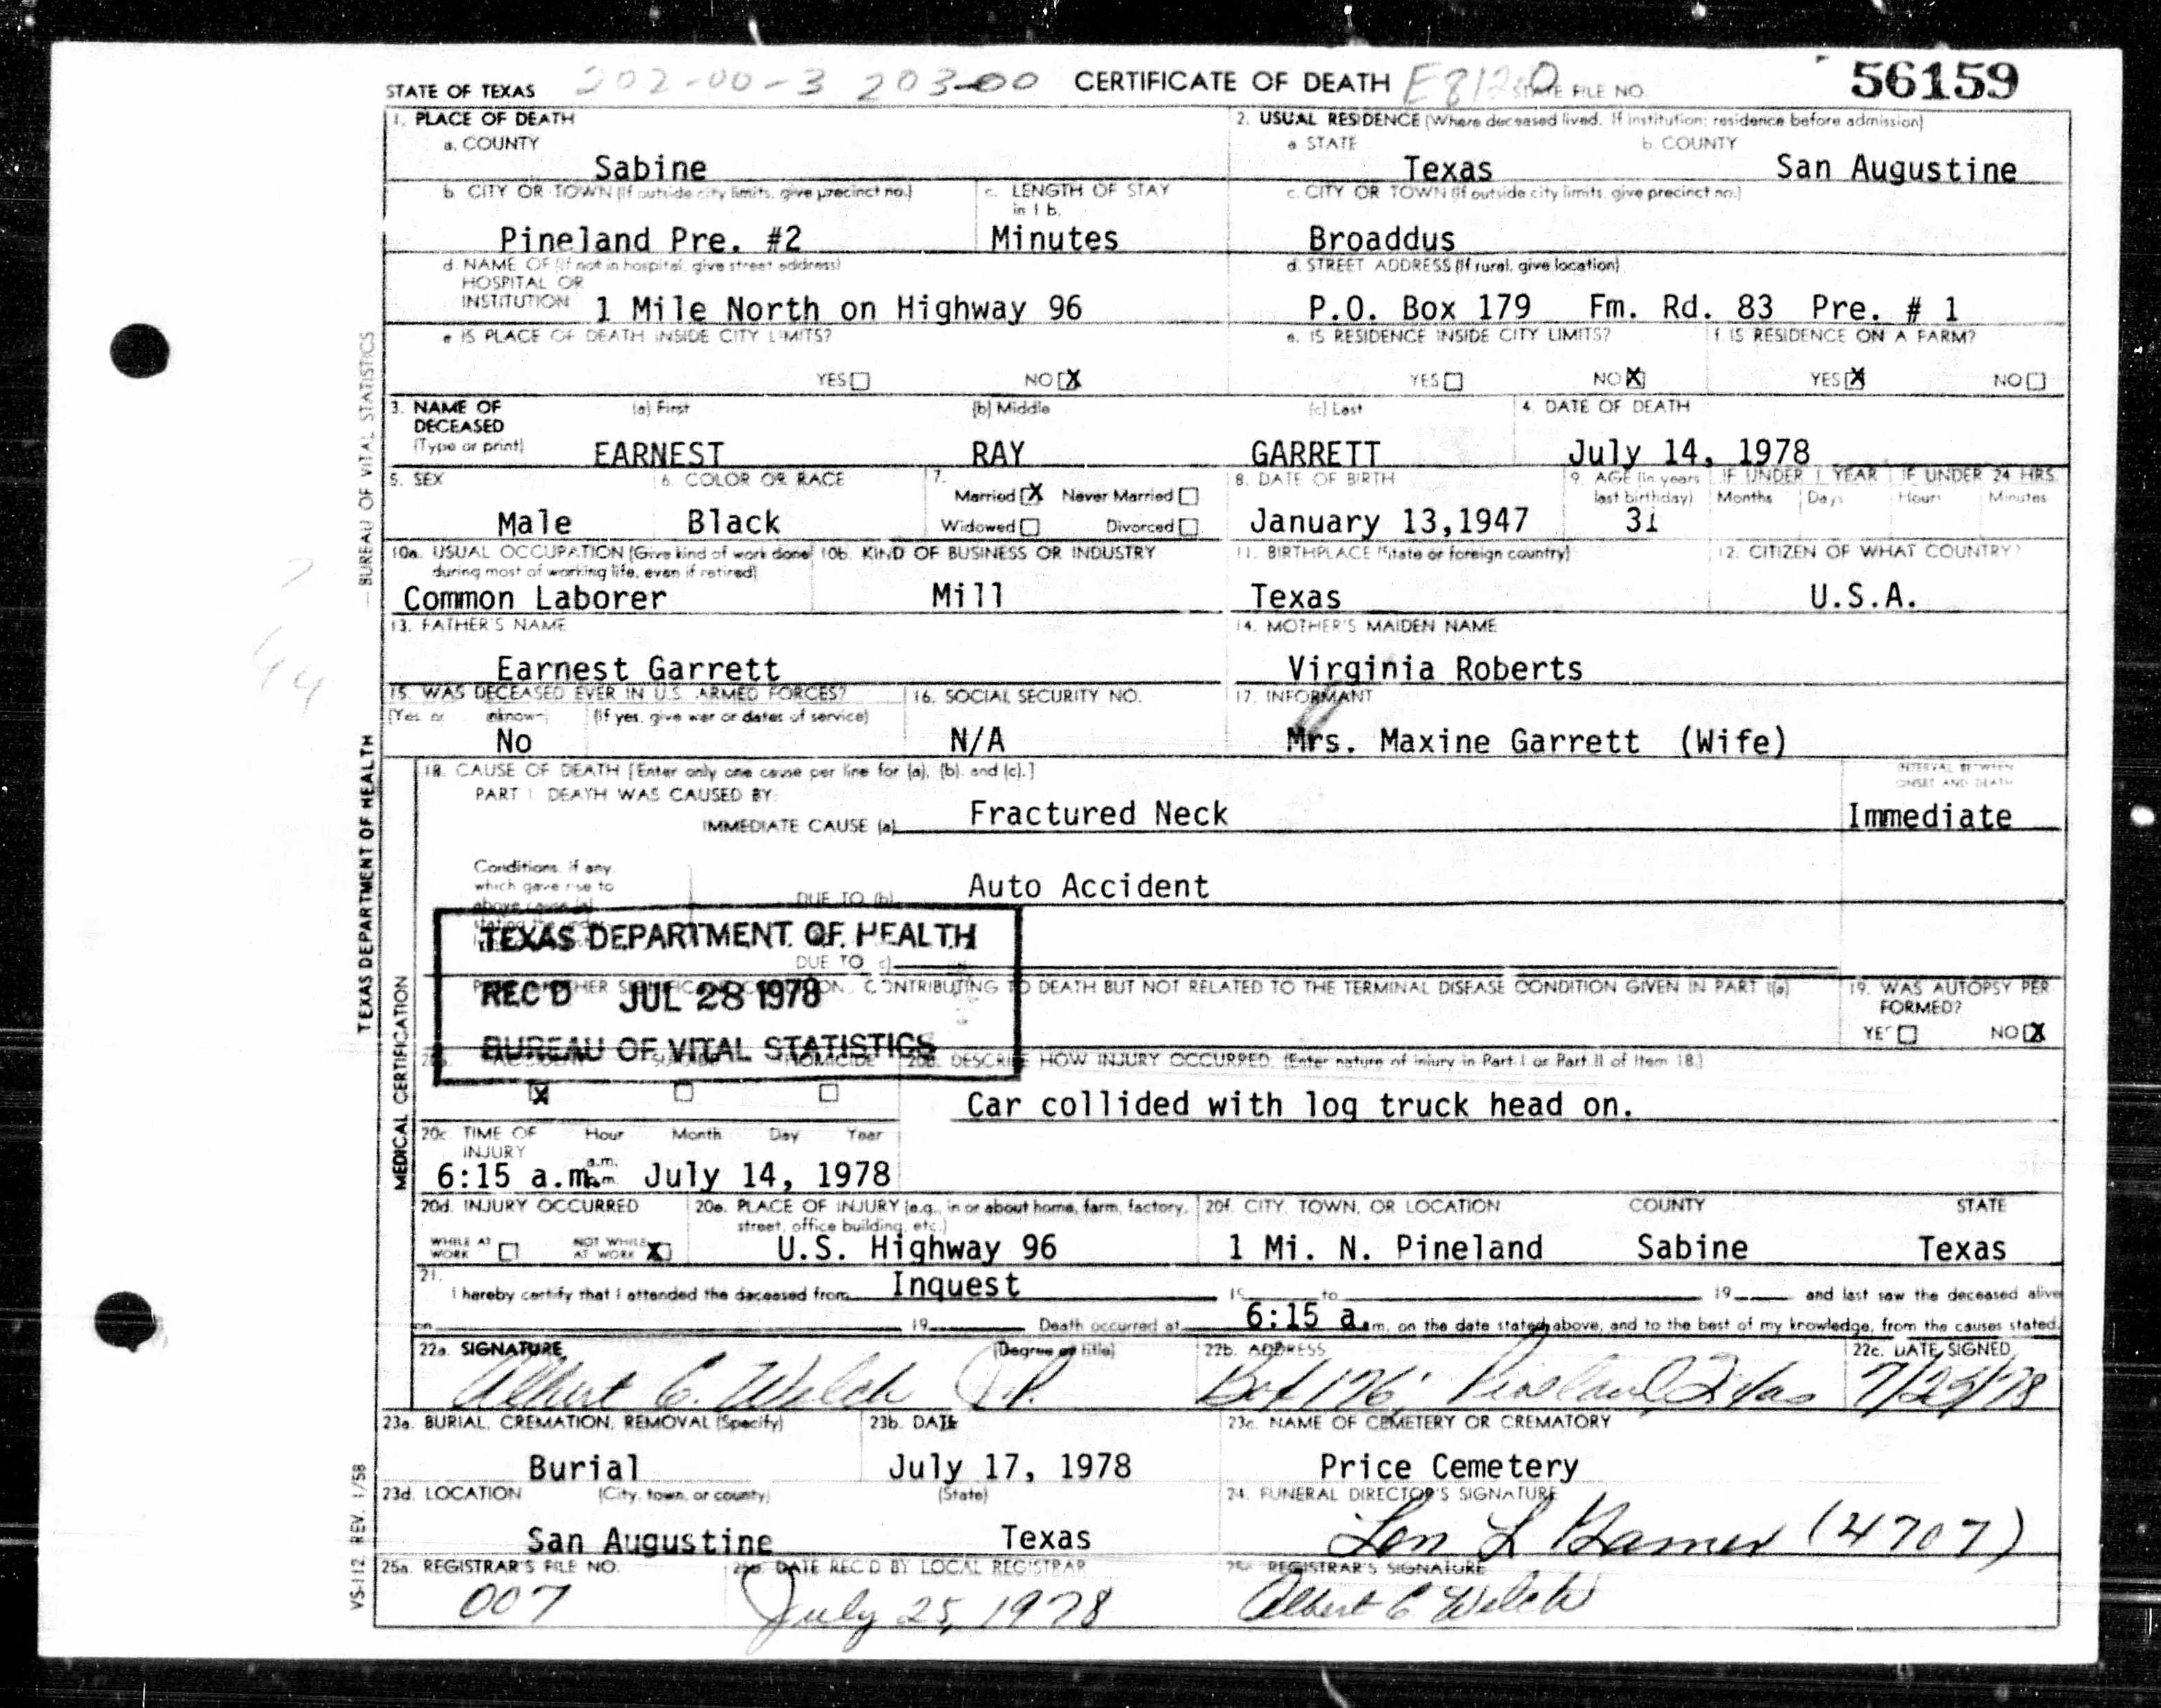 STATE OF TEXAS 202-00-3 203-00 CERTIFICATE OF DEATH E812.0 STATE FILE NO. 56159
1. PLACE OF DEATH
a. COUNTY
Sabine
2. USUAL RESIDENCE (Where deceased lived. If institution: residence before admission)
a. STATE b. COUNTY
Texas San Augustine
b. CITY OR TOWN (If outside city limits, give precinct no.) c. LENGTH OF STAY in 1 b.
Pineland Pre. #2 Minutes
c. CITY OR TOWN (If outside city limits, give precinct no.)
Broaddus
d. NAME OF (If not in hospital, give street address)
HOSPITAL OR
INSTITUTION 1 Mile North on Highway 96
d. STREET ADDRESS (If rural, give location)
P.O. Box 179 Fm. Rd. 83 Pre. # 1
e. IS PLACE OF DEATH INSIDE CITY LIMITS?
YES NO X
e. IS RESIDENCE INSIDE CITY LIMITS? f. IS RESIDENCE ON A FARM?
YES NO X YES X NO
3. NAME OF DECEASED (Type or print) (a) First (b) Middle (c) Last 4. DATE OF DEATH
EARNEST RAY GARRETT July 14, 1978
5. SEX 6. COLOR OR RACE 7. Married X Never Married Widowed Divorced
Male Black
8. DATE OF BIRTH 9. AGE (In years last birthday) IF UNDER 1 YEAR IF UNDER 24 HRS.
Months Days Hours Minutes
January 13,1947 31
10a. USUAL OCCUPATION (Give kind of work done during most of working life, even if retired) 10b. KIND OF BUSINESS OR INDUSTRY 11. BIRTHPLACE (State or foreign country) 12. CITIZEN OF WHAT COUNTRY?
Common Laborer Mill Texas U.S.A.
13. FATHER'S NAME 14. MOTHER'S MAIDEN NAME
Earnest Garrett Virginia Roberts
15. WAS DECEASED EVER IN U.S. ARMED FORCES? 16. SOCIAL SECURITY NO. 17. INFORMANT
(If yes, give war or dates of service)
No N/A Mrs. Maxine Garrett (Wife)
18. CAUSE OF DEATH [Enter only one cause per line for (a), (b), and (c).] INTERVAL BETWEEN ONSET AND DEATH
PART I. DEATH WAS CAUSED BY:
IMMEDIATE CAUSE (a) Fractured Neck Immediate
Conditions, if any,
which gave rise to
above cause (a)
DUE TO (b) Auto Accident
TEXAS DEPARTMENT OF HEALTH
DUE TO (c)
REC'D JUL 28 1978
CONTRIBUTING TO DEATH BUT NOT RELATED TO THE TERMINAL DISEASE CONDITION GIVEN IN PART I(a) 19. WAS AUTOPSY PERFORMED?
YES NO X
BUREAU OF VITAL STATISTICS
ACCIDENT SUICIDE HOMICIDE 20b. DESCRIBE HOW INJURY OCCURRED. (Enter nature of injury in Part I or Part II of Item 18.)
X Car collided with log truck head on.
20c. TIME OF INJURY Hour Month Day Year
a.m. p.m.
6:15 a.m. July 14, 1978
20d. INJURY OCCURRED 20e. PLACE OF INJURY (e.g., in or about home, farm, factory, street, office building, etc.) 20f. CITY, TOWN, OR LOCATION COUNTY STATE
WHILE AT WORK NOT WHILE AT WORK X U.S. Highway 96 1 Mi. N. Pineland Sabine Texas
21. I hereby certify that I attended the deceased from Inquest 19 to 19 and last saw the deceased alive
on 19 Death occurred at 6:15 a.m, on the date stated above, and to the best of my knowledge, from the causes stated.
22a. SIGNATURE (Degree or title) 22b. ADDRESS 22c. DATE SIGNED
Albert C. Welch J.P. Box 176 Pineland, Texas 7/25/78
23a. BURIAL, CREMATION, REMOVAL (Specify) 23b. DATE 23c. NAME OF CEMETERY OR CREMATORY
Burial July 17, 1978 Price Cemetery
23d. LOCATION (City, town, or county) (State) 24. FUNERAL DIRECTOR'S SIGNATURE
San Augustine Texas (4707)
25a. REGISTRAR'S FILE NO. 25b. DATE REC'D BY LOCAL REGISTRAR 25c. REGISTRAR'S SIGNATURE
007 July 25, 1978 Albert C Welch
TEXAS DEPARTMENT OF HEALTH — BUREAU OF VITAL STATISTICS
MEDICAL CERTIFICATION
VS-112 REV. 1/58